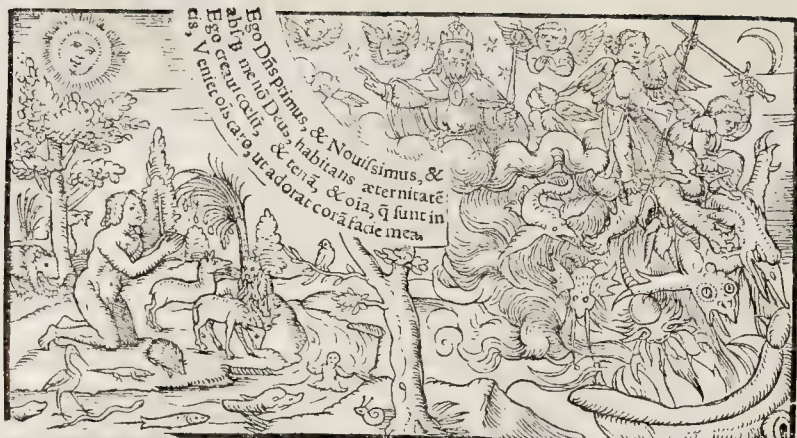 Ego Dñs primus, & Nouiſſimus, &
abſq; me nõ Deus, habitans æternitatẽ
Ego creaui cœlũ, & terrã, & oĩa, q̃ ſunt in
eis, Veniet oĩs caro, ut adorat corã facie mea,